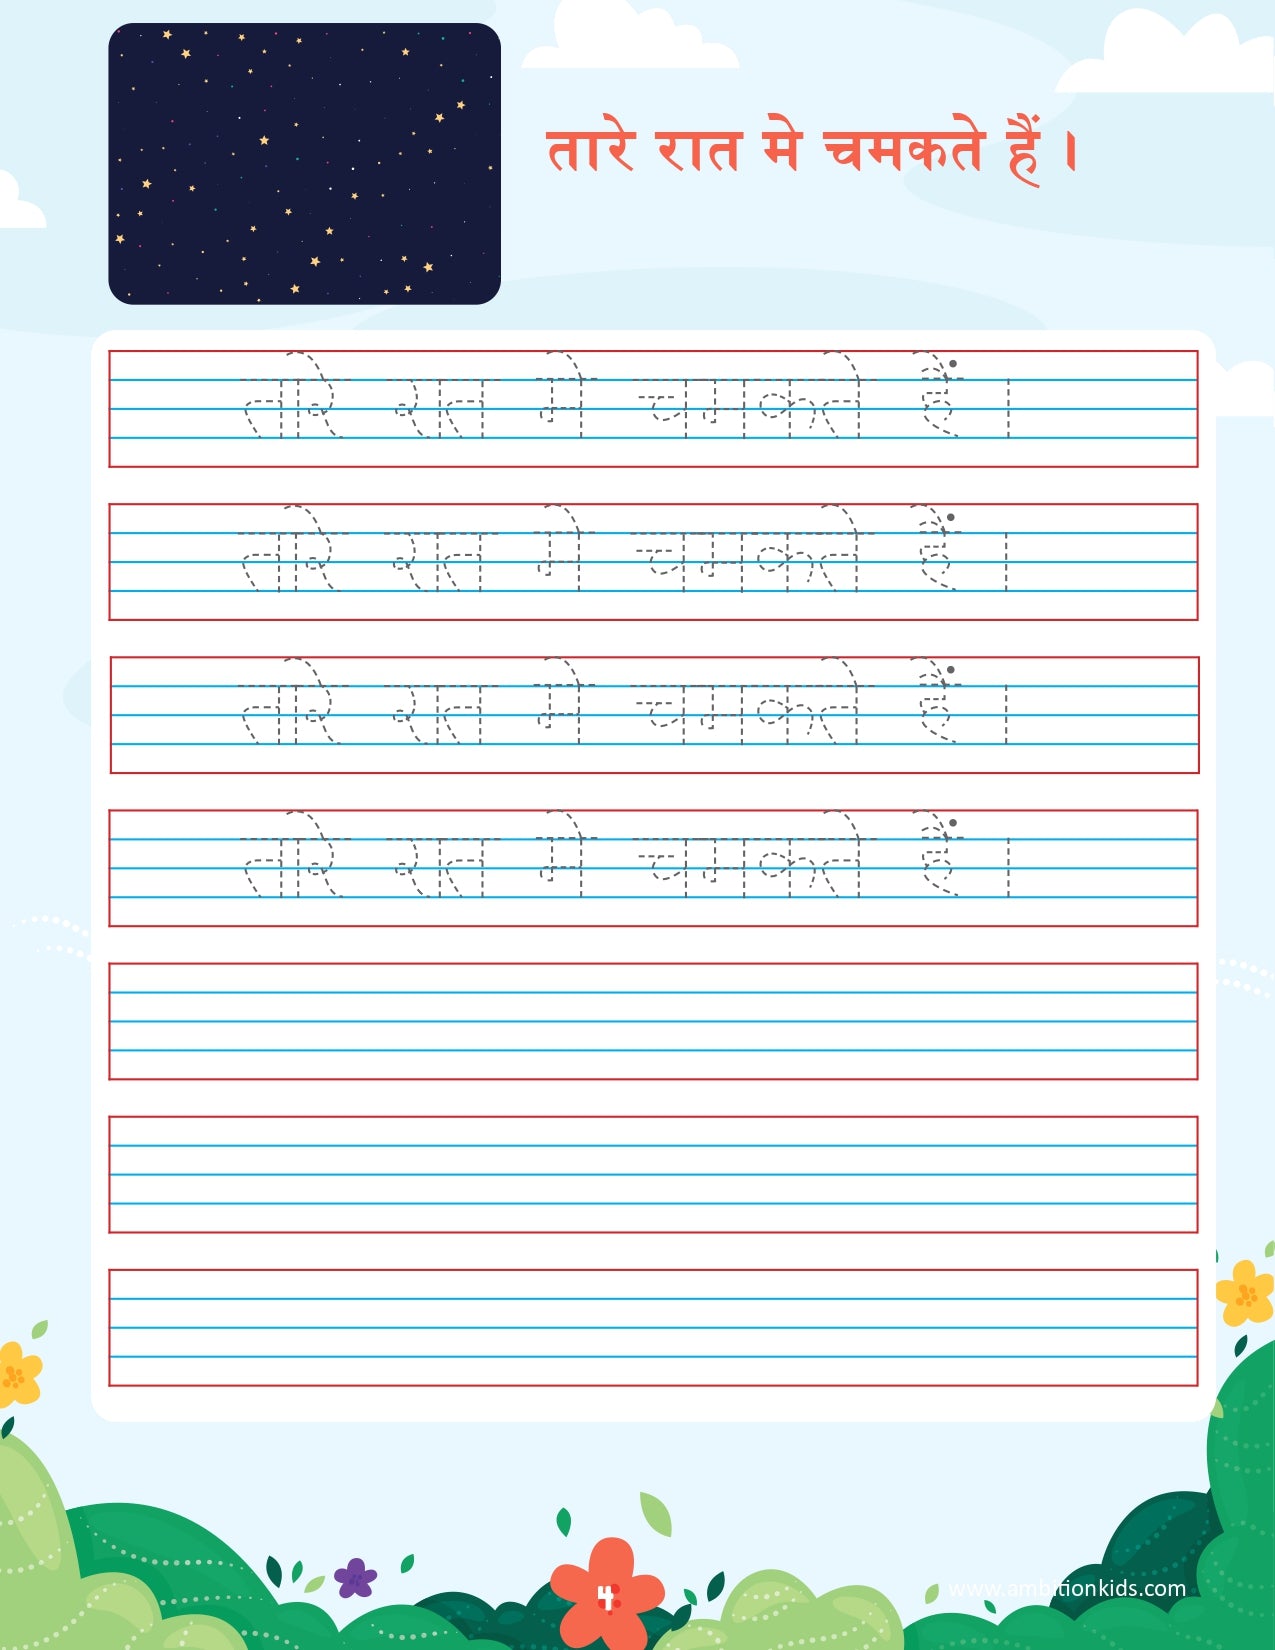 तारे रात मे चमकते हैं ।
तारे रात मे चमकते हैं ।
तारे रात मे चमकते हैं ।
तारे रात मे चमकते हैं ।
तारे रात मे चमकते हैं ।
५
www.ambitionkids.com